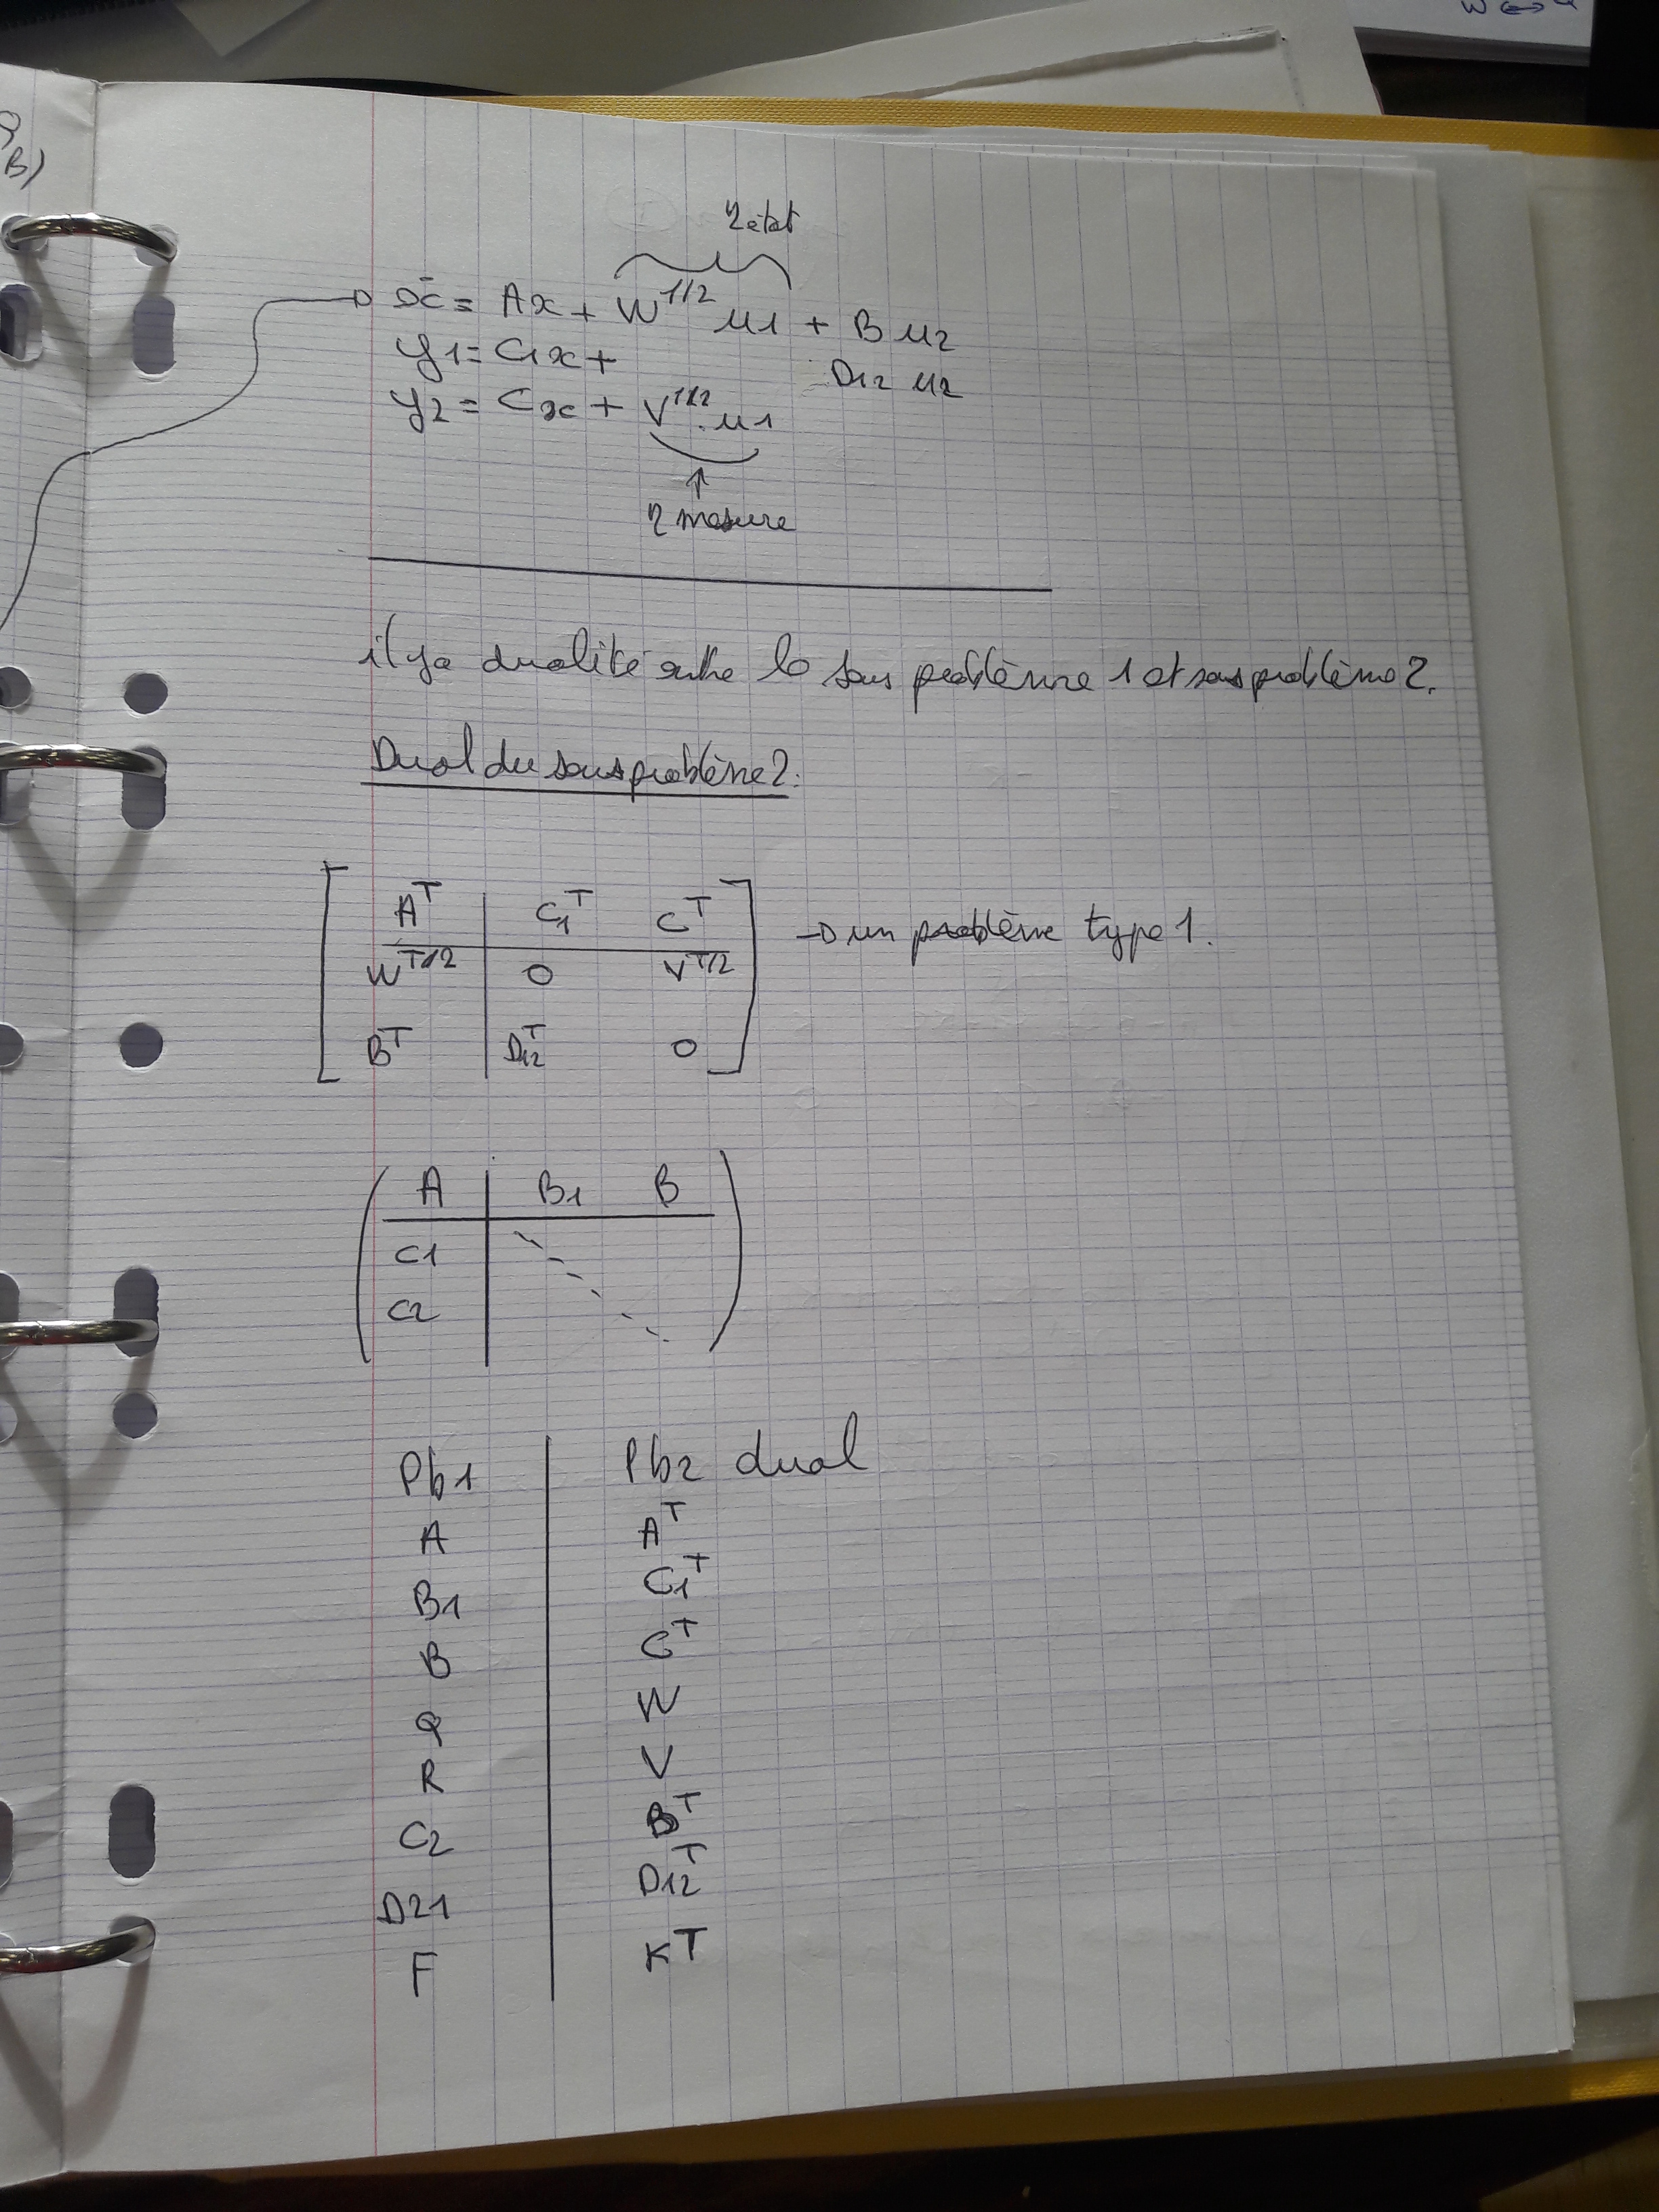 W ↔ u
B)
η état
ẋ = Ax + W^1/2 u1 + B u2
y1 = C1x + D12 u2
y2 = Cx + V^1/2 . u1
↑
η mesure
il y a dualité entre le sous problème 1 et sous problème 2.
Dual du sous problème 2:
A^T | C1^T C^T → un problème type 1.
W^T/2 | 0 V^T/2
B^T | D12^T 0
A | B1 B
C1
C2
Pb1 | Pb2 dual
A | A^T
B1 | C1^T
B | C^T
Q | W
R | V
C2 | B^T
D21 | D12^T
F | K^T